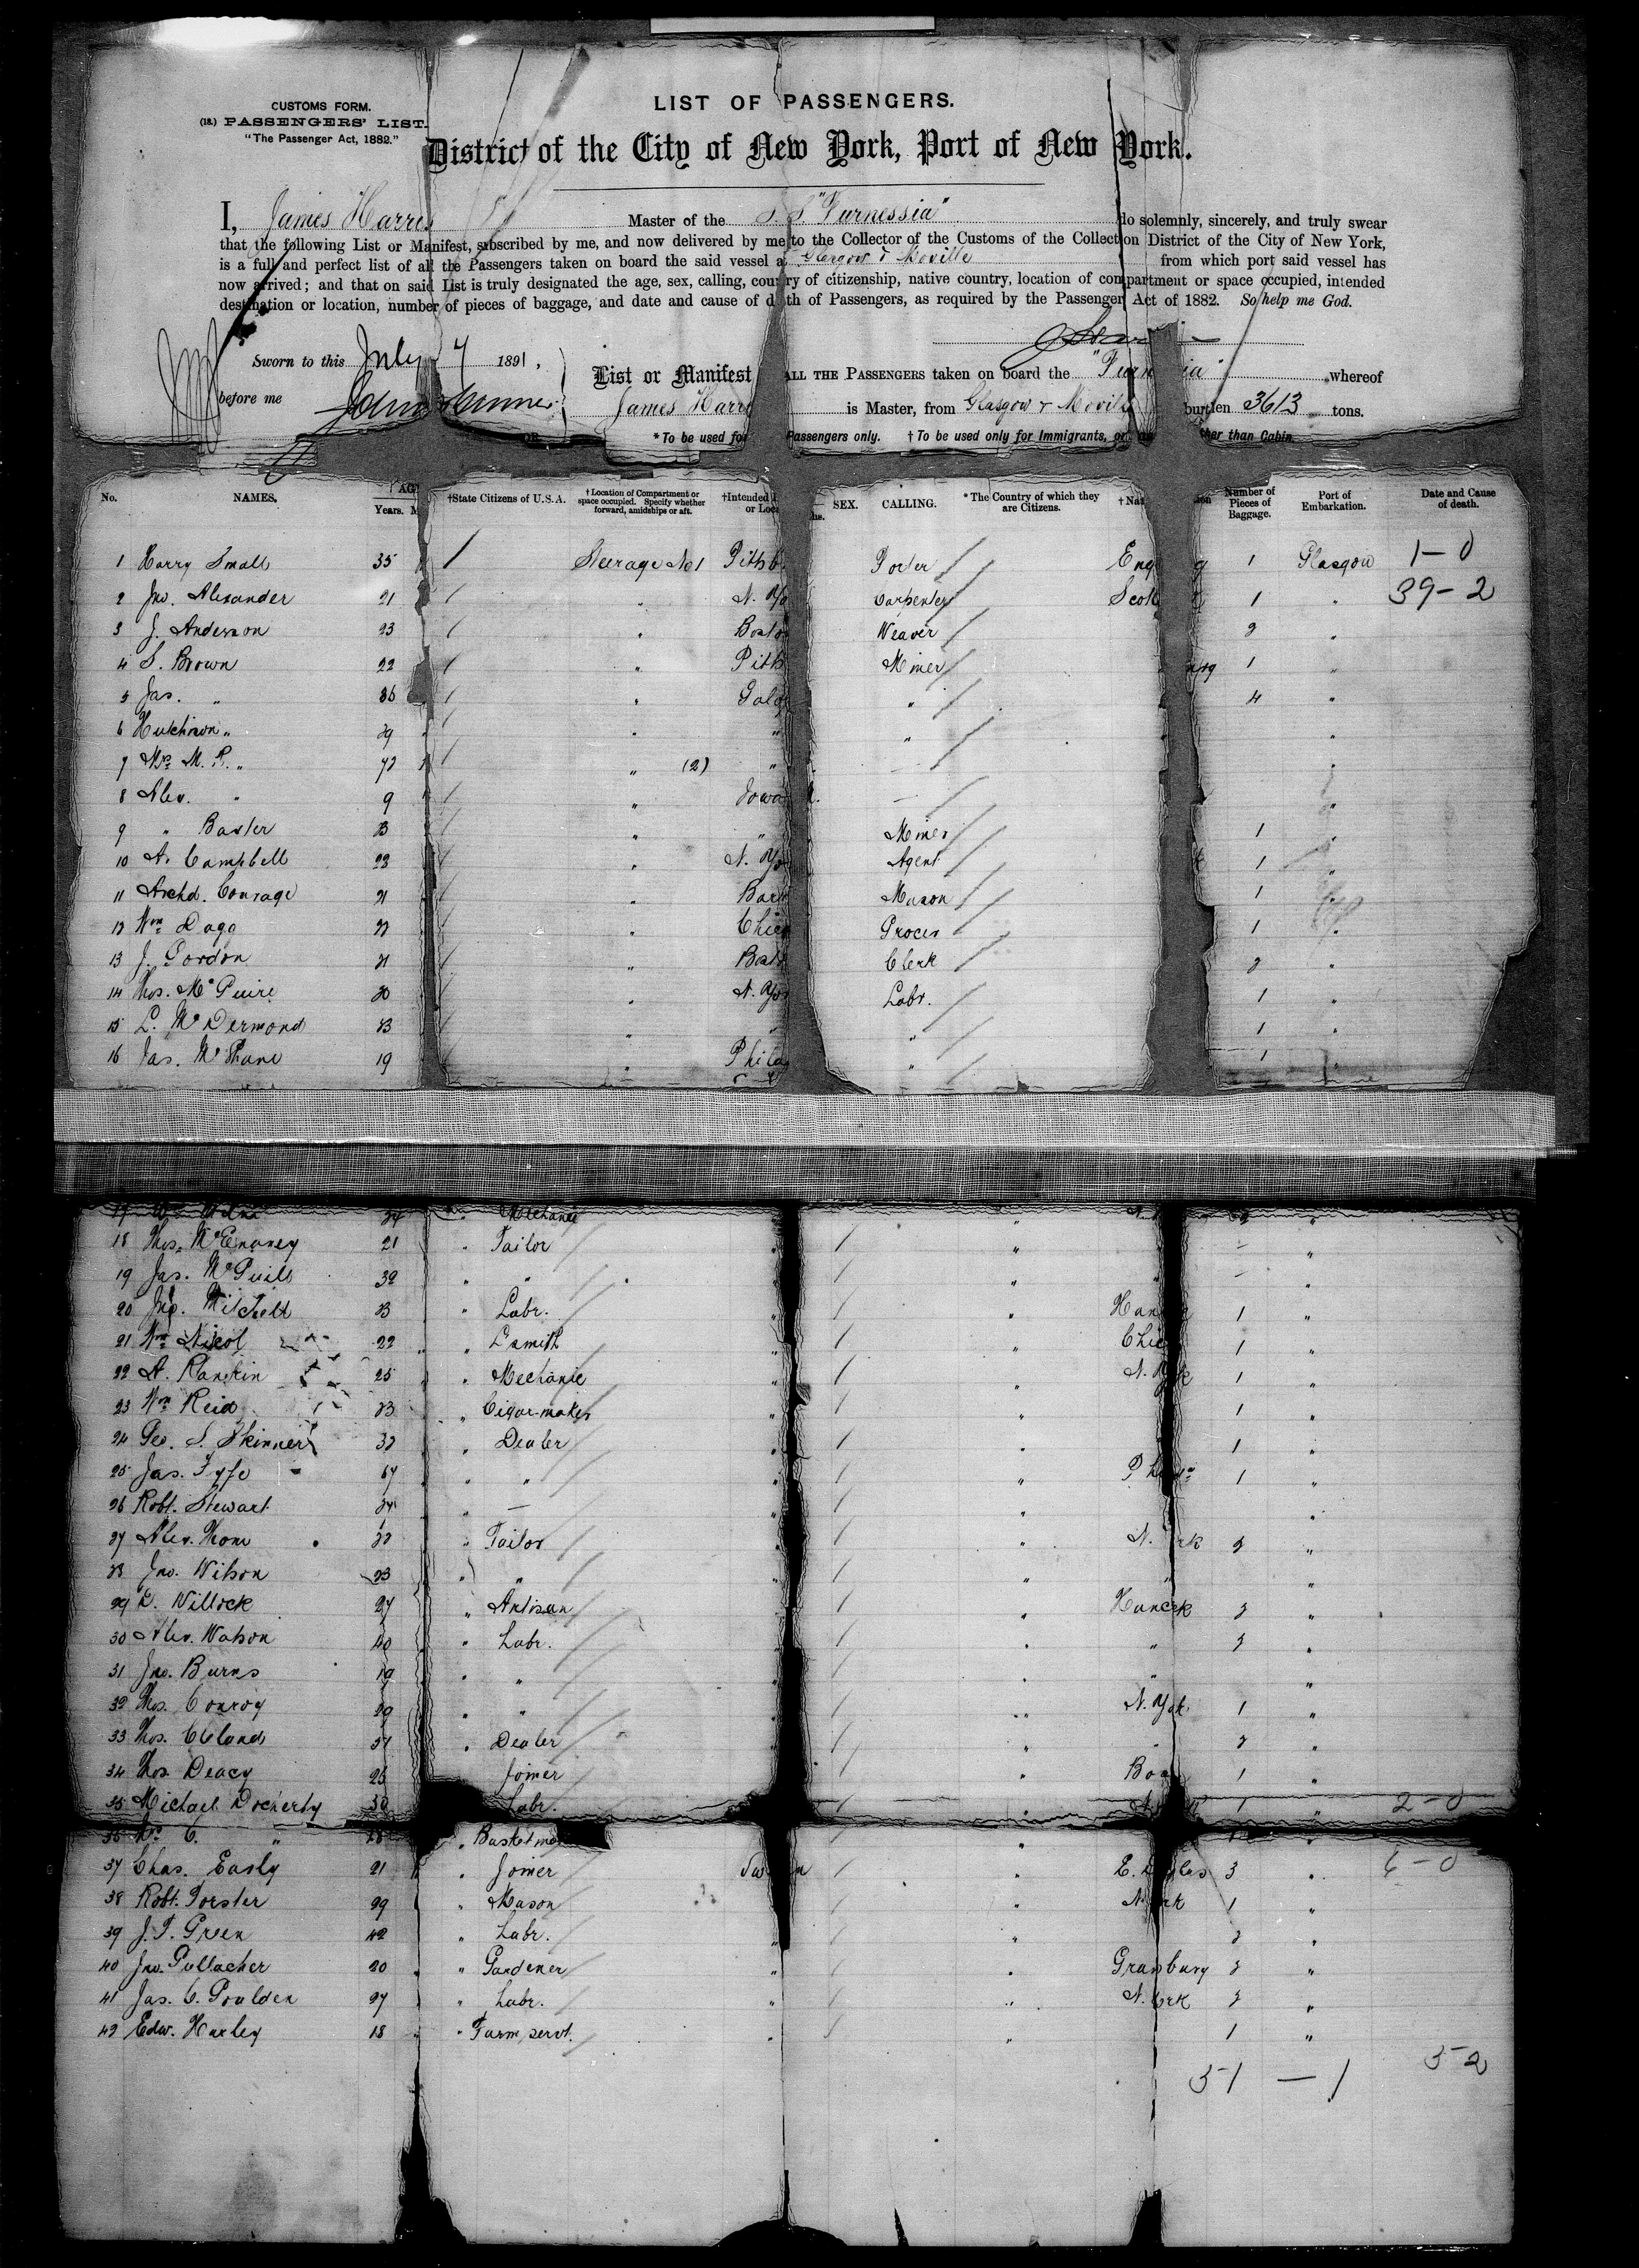 CUSTOMS FORM.
(18.) PASSENGERS' LIST.
"The Passenger Act, 1882."
LIST OF PASSENGERS.
District of the City of New York, Port of New York.
I, James Harris Master of the S. S. "Furnessia" do solemnly, sincerely, and truly swear
that the following List or Manifest, subscribed by me, and now delivered by me to the Collector of the Customs of the Collection District of the City of New York,
is a full and perfect list of all the Passengers taken on board the said vessel at Glasgow & Moville from which port said vessel has
now arrived; and that on said List is truly designated the age, sex, calling, country of citizenship, native country, location of compartment or space occupied, intended
destination or location, number of pieces of baggage, and date and cause of death of Passengers, as required by the Passenger Act of 1882. So help me God.
Sworn to this July 7 1891,
before me
List or Manifest ALL THE PASSENGERS taken on board the "Furnessia" whereof
James Harris is Master, from Glasgow & Moville burthen 3613 tons.
*To be used for Passengers only. †To be used only for Immigrants, or ther than Cabin.
No. NAMES. AG Years. M †State Citizens of U.S.A. †Location of Compartment or space occupied. Specify whether forward, amidships or aft. †Intended or Loc hs. SEX. CALLING. *The Country of which they are Citizens. †Nat on Number of Pieces of Baggage. Port of Embarkation. Date and Cause of death.
1 Harry Small 35 / Steerage No 1 Pittsb Porter Eng g 1 Glasgow 1-0
2 Jno. Alexander 21 / " N. Yo Carpenter Scot 1 " 39-2
3 J. Anderson 23 / " Bosto Weaver 2 "
4 S. Brown 22 / " Pitts Miner urg 1 "
5 Jas. " 36 / " Gal " 4 "
6 Hutchison " 29 / " " " "
7 Mrs M. R. " 72 / " (2) " — "
8 Alex. " 9 / " Iowa — "
9 " Baxter 23 / " " Miner 1 "
10 A. Campbell 23 " N. Yo Agent 1 "
11 Archd. Courage 21 " Bar Mason 1 "
12 Wm Dagg 22 " Chic Grocer 1 "
13 J. Gordon 21 " Bost Clerk 2 "
14 Thos. McGuire 20 " N. Yo Labr. 1 "
15 L. McDermond 23 " " " 1 "
16 Jas. McShane 19 " Phila " 1 "
17 24 " Mechanic "
18 Thos. McEnaney 21 " Tailor " / " — "
19 Jas. McGuill 32 " " " / " " — "
20 Jno. Mitchell 23 " Labr. " / " Han 1 "
21 Wm Nicol 22 " L smith " / " Chic 1 "
22 A. Rankin 25 " Mechanic / " N. York 1 "
23 Wm Reid 23 " Cigar-maker " / " 1 "
24 Geo. S. Skinner 32 " Dealer " / " 1 "
25 Jas. Fyfe 67 " " " / " 1 "
26 Robt. Stewart 24 " — " / " "
27 Alex. Thom 22 " Tailor " / " N. rk 2 "
28 Jno. Wilson 23 " " " / " " "
29 D. Willock 27 " Artisan " / " Hancok 2 "
30 Alex. Watson 40 " Labr. " / " " 2 "
31 Jno. Burns 19 " " " / " " "
32 Thos. Conroy 29 " " " / " N. Yok 1 "
33 Thos. Cleland 51 " Dealer " / " " 2 "
34 Thos. Deacy 26 Joiner / " Bos 1 "
35 Michael Docherty 30 Labr. / " 1 " 2-0
36 Mrs C. " 28 " / " "
37 Chas. Early 21 " Joiner / " E. D glas 3 " 6-0
38 Robt. Forster 29 " Mason / " N. rk 1 "
39 J. F. Green 42 " Labr. " / " 2 "
40 Jno. Gullacher 20 " Gardener " / " Granbury 2 "
41 Jas. C. Goulden 27 " Labr. " / " N. ork 2 "
42 Edw. Harley 18 " Farm servt. " / " 1 "
51 — 1 52